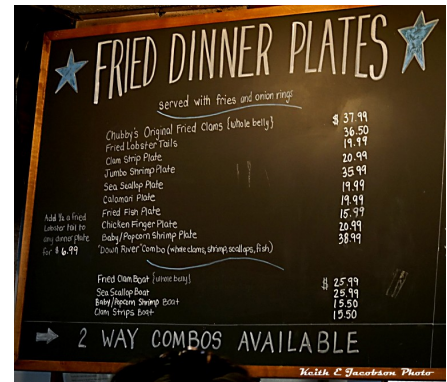 FRIED DINNER PLATES
served with fries and onion rings
Chubby's Original Fried Clams {whole belly} $ 37.99
Fried Lobster Tails 36.50
Clam Strip Plate 19.99
Jumbo Shrimp Plate 20.99
Sea Scallop Plate 35.99
Calamari Plate 19.99
Fried Fish Plate 19.99
Chicken Finger Plate 15.99
Baby/Popcorn Shrimp Plate 20.99
"Down River" Combo (whole clams, shrimp, scallops, fish) 38.99
Add ½ a fried
Lobster tail to
any dinner plate
for $ 6.99
Fried Clam Boat {whole belly} $ 25.99
Sea Scallop Boat 25.99
Baby/Popcorn Shrimp Boat 15.50
Clam Strips Boat 15.50
2 WAY COMBOS AVAILABLE
Keith E Jacobson Photo